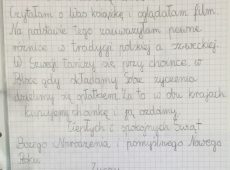 Czytałam o Liso książkę i oglądałam film.
Na podstawie tego zauważyłam pewne
różnice w tradycji polskiej a szwedzkiej.
W Szwecji tańczy się przy choince, w
Polsce gdy składamy sobie życzenia
dzielimy się opłatkiem. Za to w obu krajach
kupujemy choinkę i ją ozdabiamy.
Ciepłych i spokojnych Świąt
Bożego Narodzenia i pomyślnego Nowego
Roku